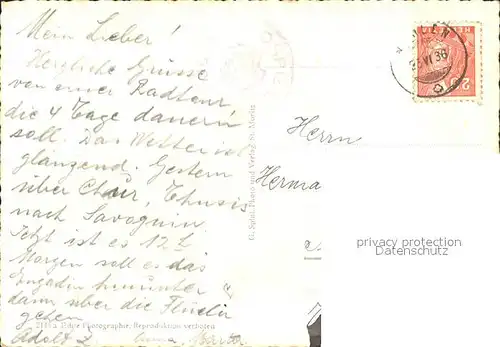 Mein Lieber!
Herzliche Grüsse
von einer Radtour,
die 4 Tage dauern
soll. Das Wetter ist
glänzend. Gestern
über Chur, Thusis
nach Savognin.
Jetzt ist es 12
Morgen soll es das
Engadin hinunter
dann über die Flüela
gehen.
2116a Echte Photographie, Reproduktion verboten
Adolf
Anna,
G. Sploi, Photo und Verlag, St. Moritz
VI 36
20
Herrn
Herma
privacy protection
Datenschutz